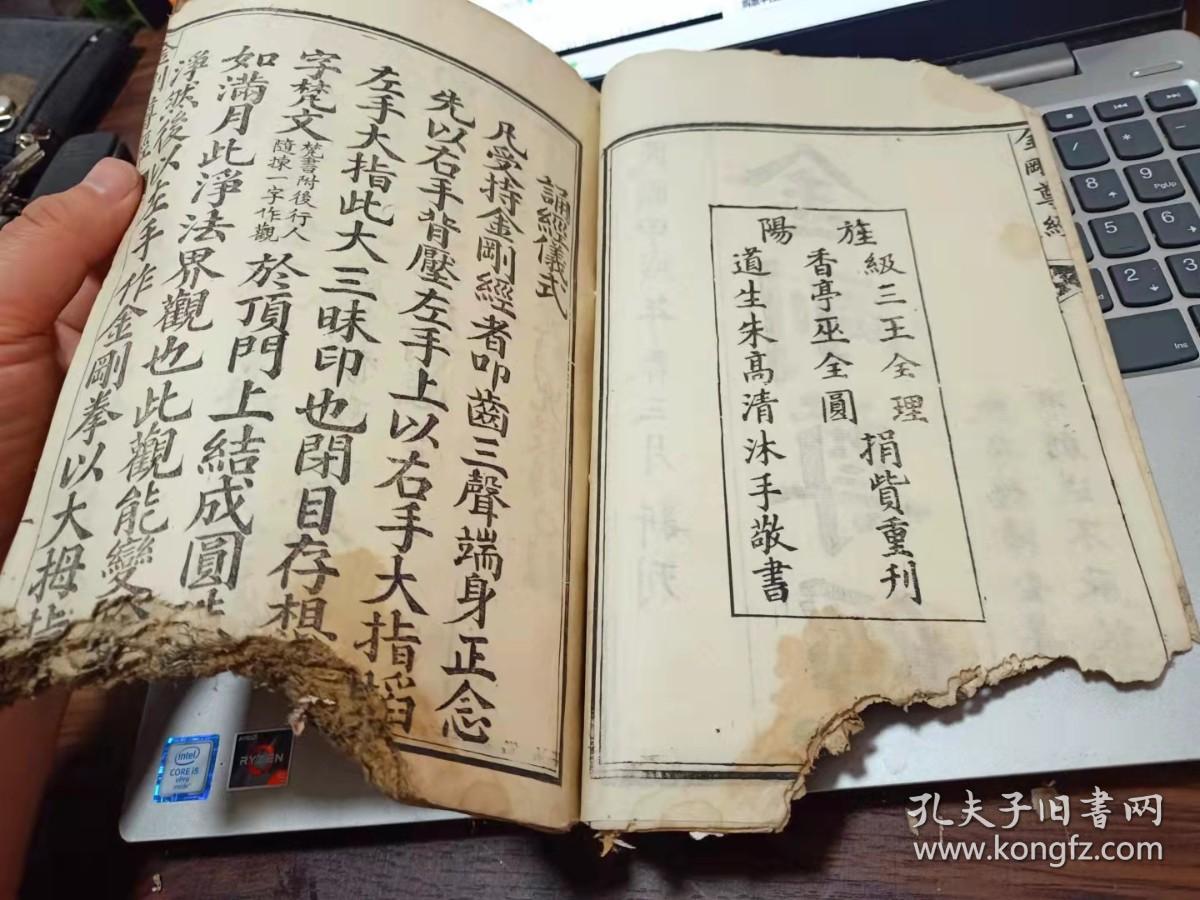 金剛尊經
旌陽
級三王全理
香亭巫全圓
捐貲重刊
道生朱高清沐手敬書
誦經儀式
凡受持金剛經者叩齒三聲端身正念
先以右手背壓左手上以右手大指搯
左手大指此大三昧印也閉目存想
字梵文梵書附後行人
隨揀一字作觀於頂門上結成圓
如滿月此淨法界觀也此觀能變
淨然後以左手作金剛拳以大拇指
intel
CORE i5
vPro
inside
AMD
RYZEN
PgUp
8
9
5
6
2
3
孔夫子旧书网
www.kongfz.com